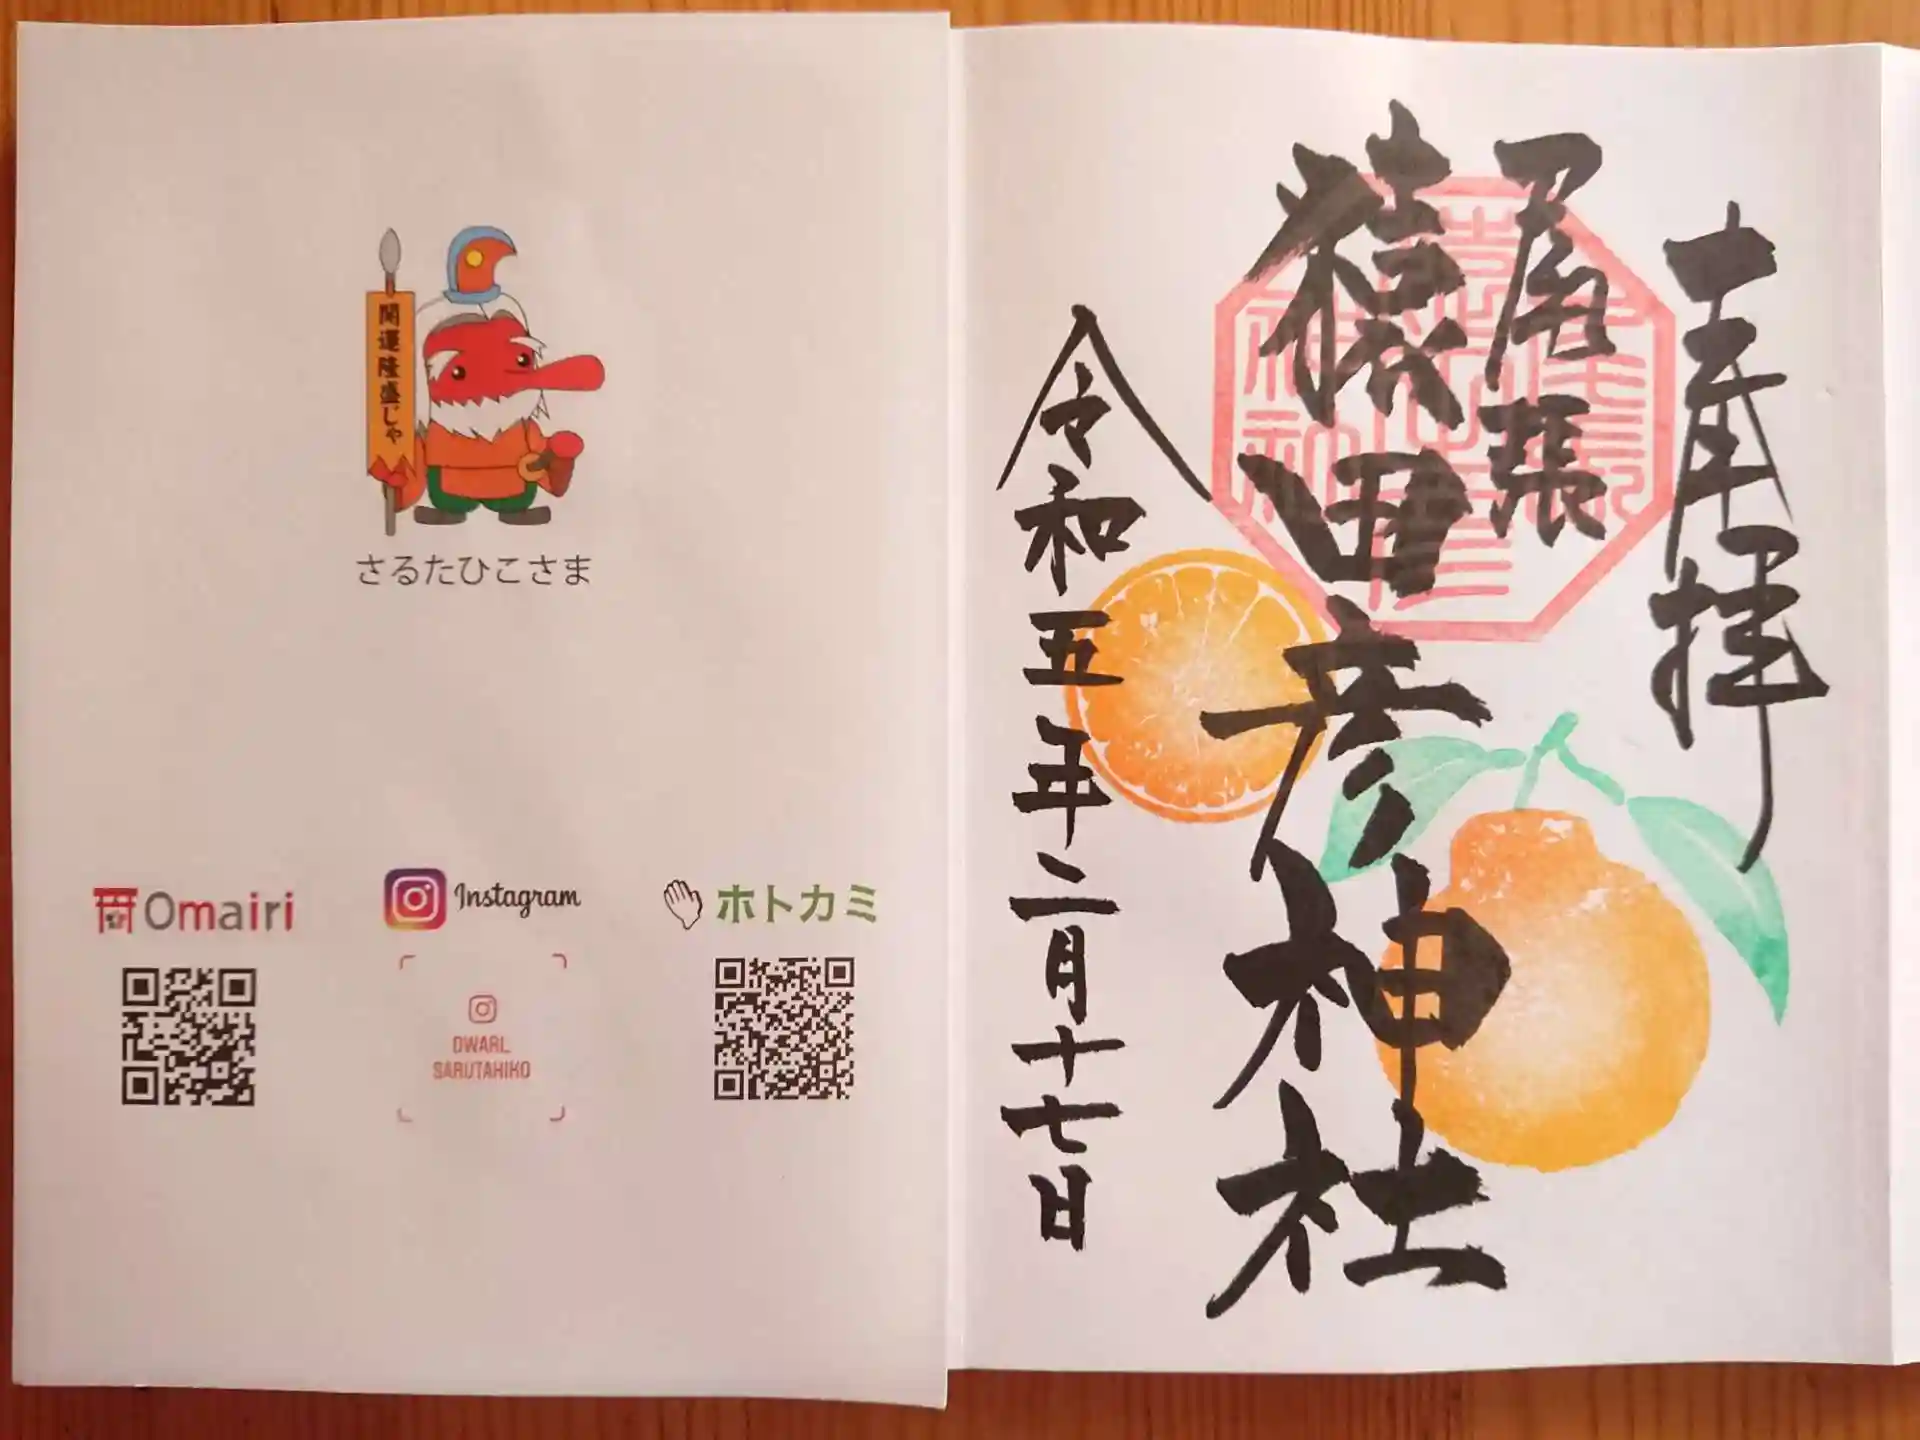 開運隆盛じゃ
さるたひこさま
Omairi
Instagram
ホトカミ
OWARI_
SARUTAHIKO
奉拝
尾張
猿田彦神社
令和五年二月十七日